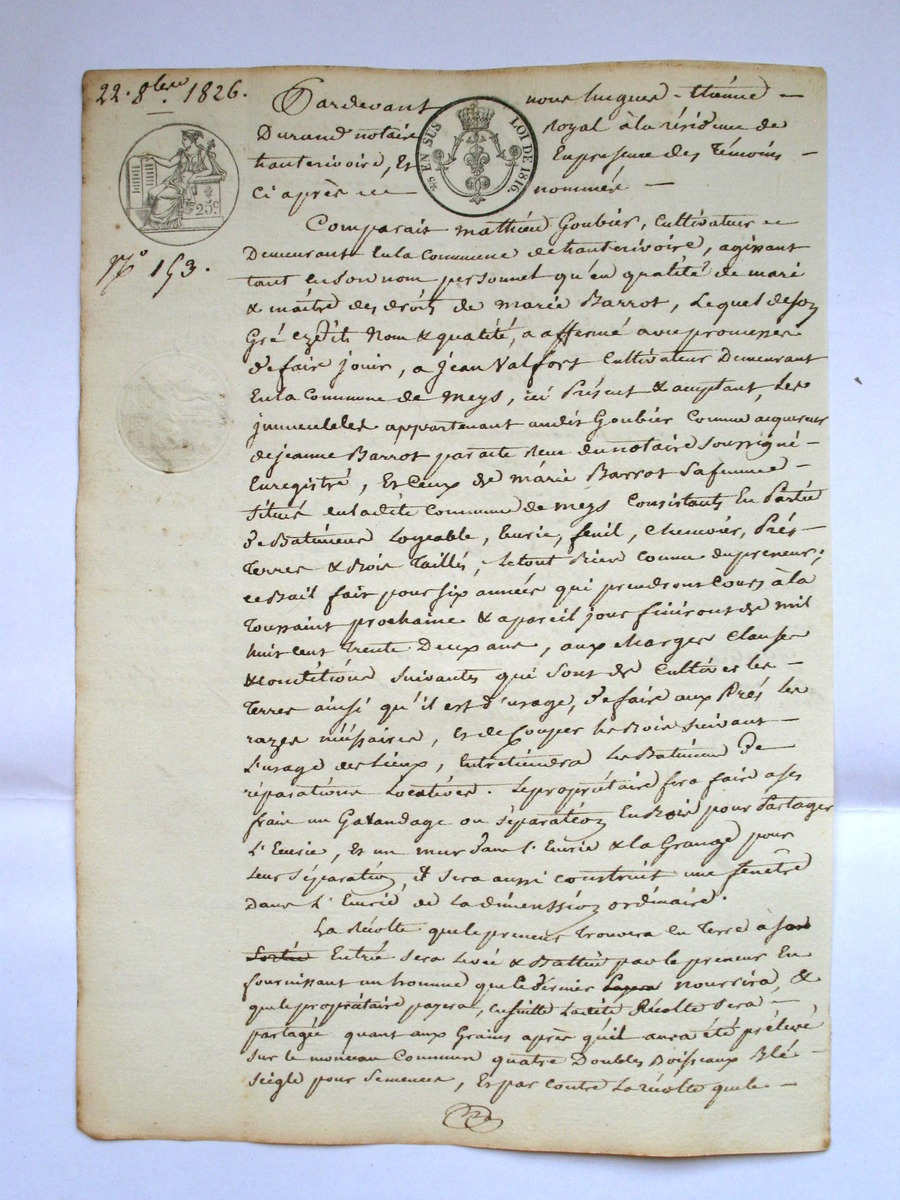 22. 8bre 1826.
Pardevant nous hugues-Etienne
Durand notaire royal à la résidence de
hauterivoire, Et En présence des Témoins
Ci après nommés
EN SUS
LOI DE 1816.
25c.
N° 153.
Comparait mathieu Goubier, Cultivateur
Demeurant En la Commune de hauterivoire, agissant
tant en Son nom personnel qu'en qualité de mari
& maître des droits de marie Barrot, Lequel de son
Gré ezdits Nom & qualité, a affermé avec promesse
de faire jouir, a jean Valfort Cultivateur Demeurant
En la Commune de meys, ici Présent & acceptant, Les
jmmeubles appartenant audit Goubier Comme acquereur
de jeanne Barrot par acte Reçu du notaire Soussigné
Enregistré, Et Ceux de marie Barrot Sa femme
Situés en ladite Commune de meys Consistants En Partie
de Batimens Logeable, Ecurie, fenil, Chenevier, Prés
Terres & Bois Taillis, Le tout Bien Connu du preneur;
ce Bail fait pour Six années qui prendront Cours à la
Toussaint prochaine & apareil jour finiront de mil
huit cent trente Deux ans, aux charges Clauses
& Conditions Suivantes qui Sont de Cultiver les
Terres ainsi qu'il est d'usage, de faire aux Prés les
razes nécessaires, Et de Couper les Bois Suivant
L'usage des Lieux, Entretiendra Les Batimens De
réparations Locatives. Le propriétaire fera faire a ses
frais un Galandage ou Séparation En Bois pour Partager
L'Ecurie, Et un mur dans l'Ecurie & la Grange pour
Leur Séparation, il Sera aussi Construit une fenêtre
Dans L'Ecurie de La dimenssion ordinaire.
La Récolte que le preneur trouvera en Terre à son
Sortie Entrée Sera Levée & Battue par le preneur En
fournissant un homme que le dernier nourrira, &
que le propriétaire payera, Ensuitte Ladite Récolte Sera
partagée quant aux Grains après qu'il aura été prélevé
Sur le monceau Commun quatre Doubles Boisseaux Blé
Seigle pour Semences, Et par contre La récolte que le